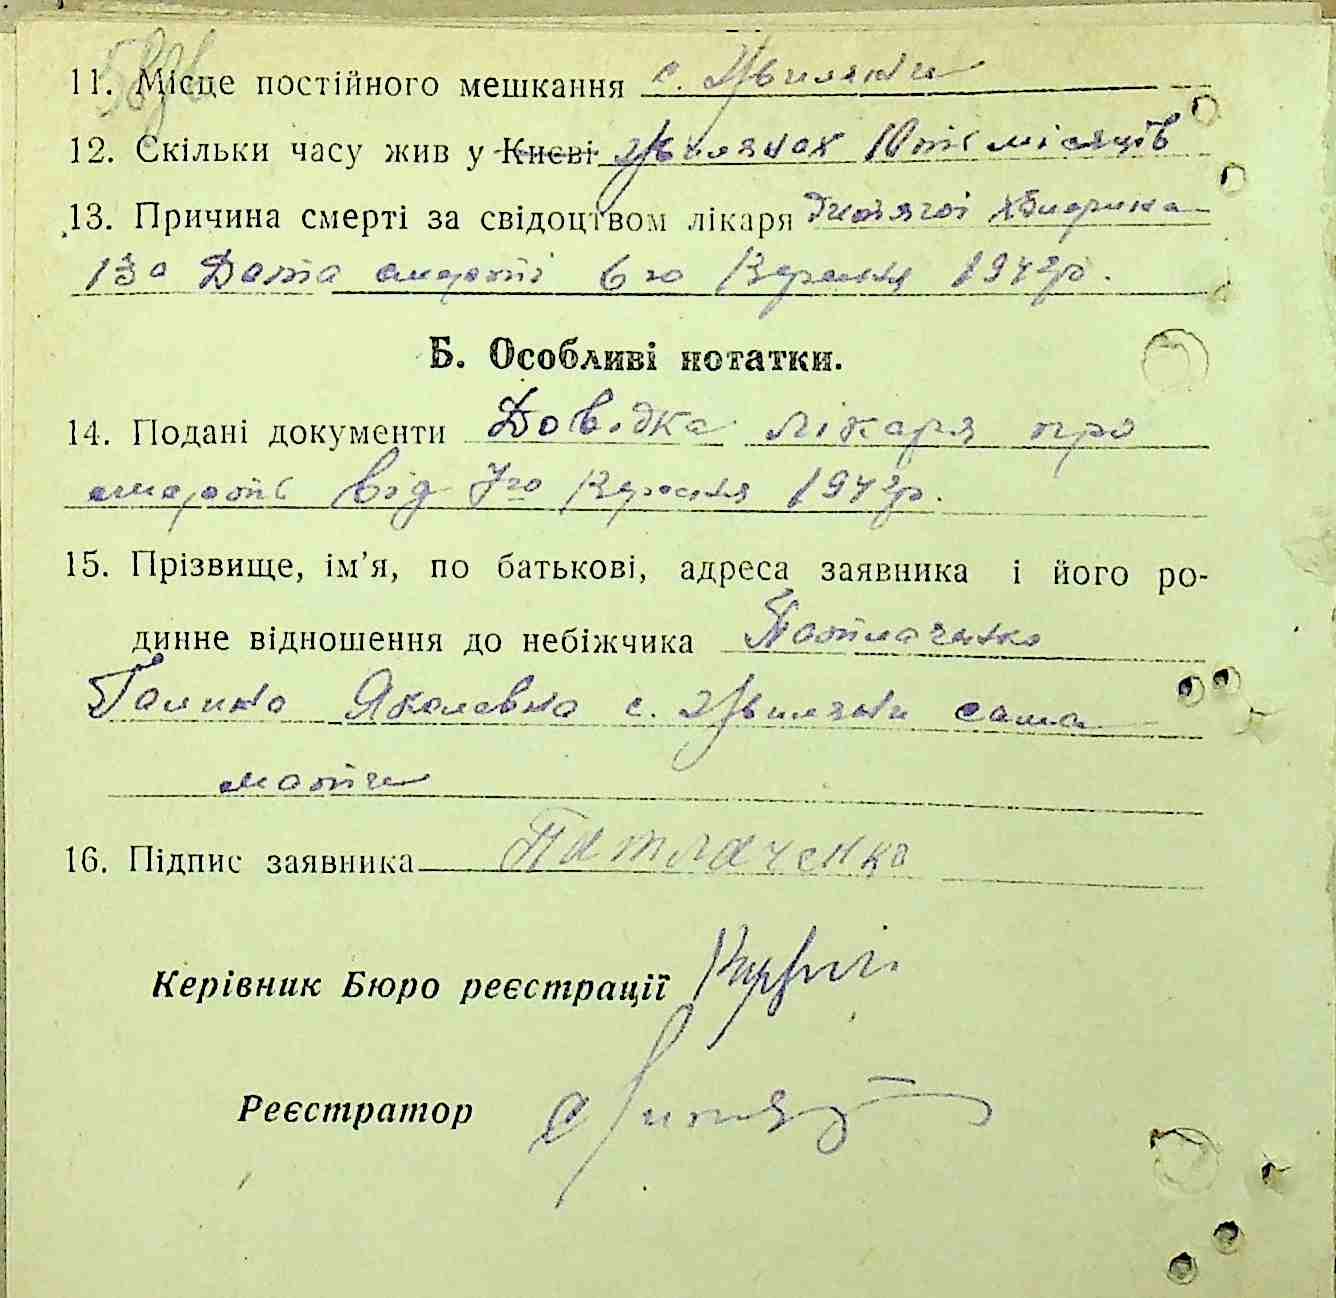 11. Місце постійного мешкання с. Жиляни
12. Скільки часу жив у Києві Жилянах місяців
13. Причина смерті за свідоцтвом лікаря Дитячі хворина
13а Дата смерті 6го Вересня 1942р.
Б. Особливі нотатки.
14. Подані документи Довідка лікаря про
смерть від 7го Вересня 1942р.
15. Прізвище, ім'я, по батькові, адреса заявника і його ро-
динне відношення до небіжчика Патлаченко
Галина Яколевна с. Жиляни сама
мати
16. Підпис заявника Патлаченко
Керівник Бюро реєстрації
Реєстратор